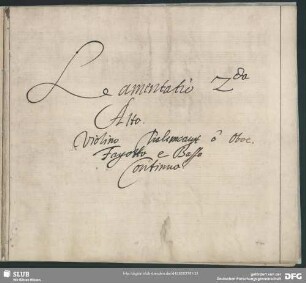 Lamentatio 2da
Alto.
Violino Chalimeaux ô Oboe.
Fagotto e Basso
Continuo
SLUB
Wir führen Wissen.
gefördert von der
Deutschen Forschungsgemeinschaft
DFG